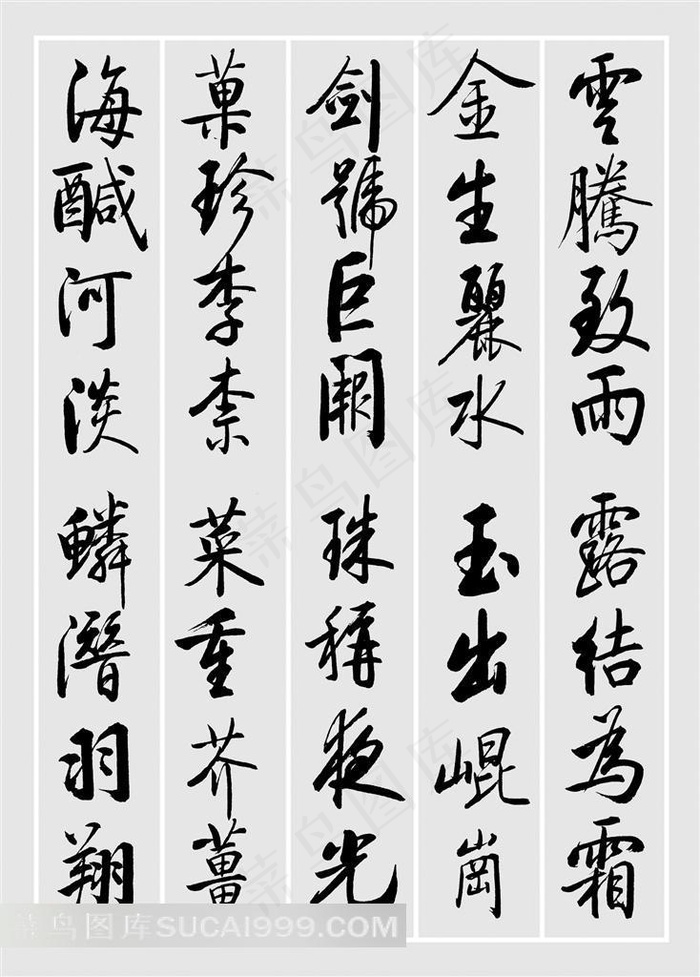 雲騰致雨露結為霜
金生麗水玉出崐崗
劍號巨闕珠稱夜光
菓珍李柰菜重芥薑
海醎河淡鱗潛羽翔
菜鸟图库SUCAI999.COM